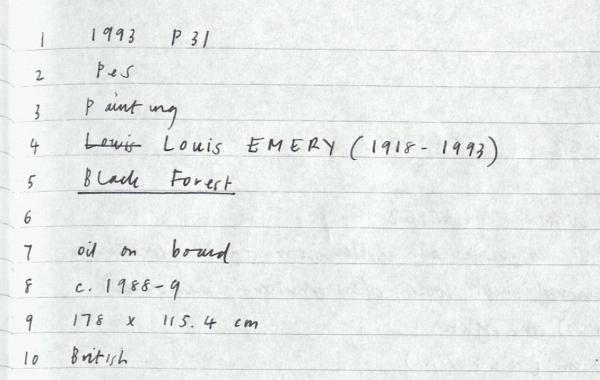 1 1993 P31
2 Pes
3 Painting
4 Lewis Louis EMERY (1918-1993)
5 Black Forest
6
7 oil on board
8 c. 1988-9
9 178 x 115.4 cm
10 British